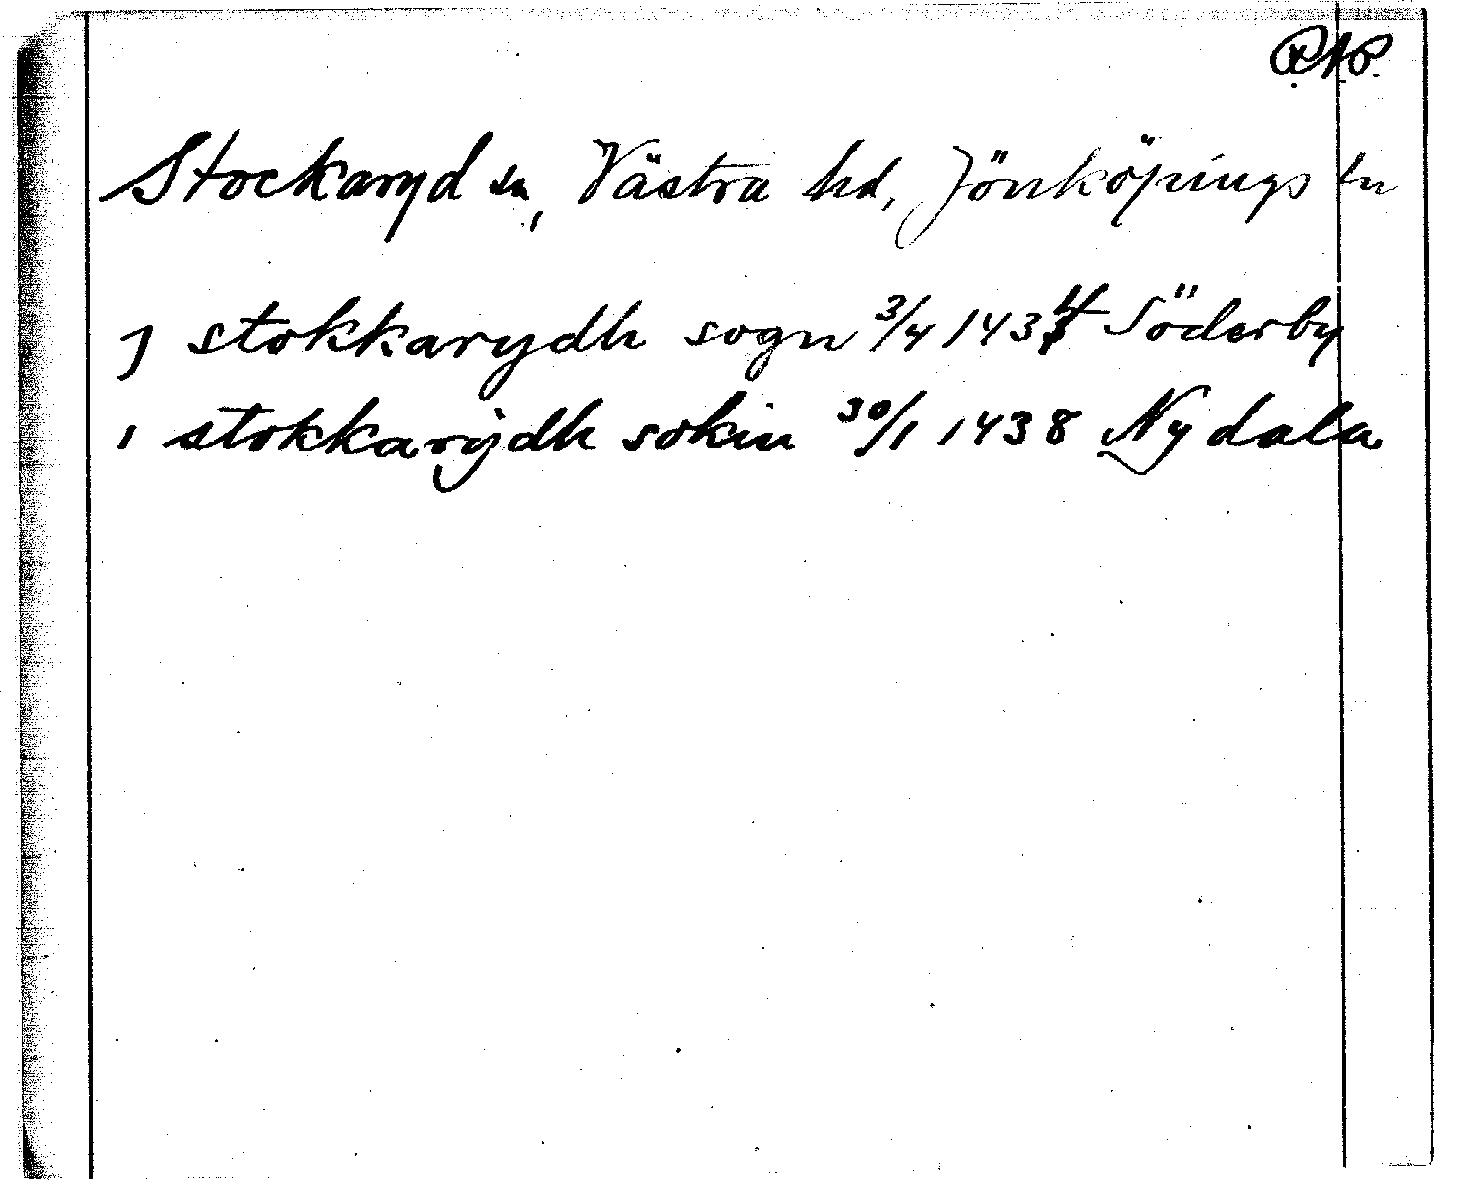 Stockaryd sn, Västra hd, Jönköpings ln
J stokkarydh sogn 3/4 1434 Söderby
i stokkarÿdh sokin 30/1 1438 Nydala